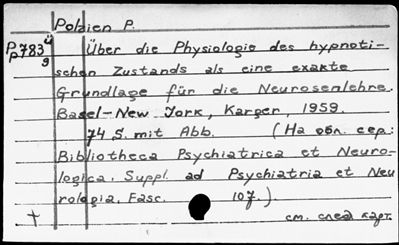 Polzien P.
Pp783 ü/9 Über die Physiologie des hypnoti-
schen Zustands als eine exakte
Grundlage für die Neurosenlehre.
Basel-New York, Karger, 1959.
74 S. mit Abb. (На обл. сер:
Bibliotheca Psychiatrica et Neuro-
logica. Suppl. ad Psychiatria et Neu
rologia. Fasc. 107.).
† см. след карт.